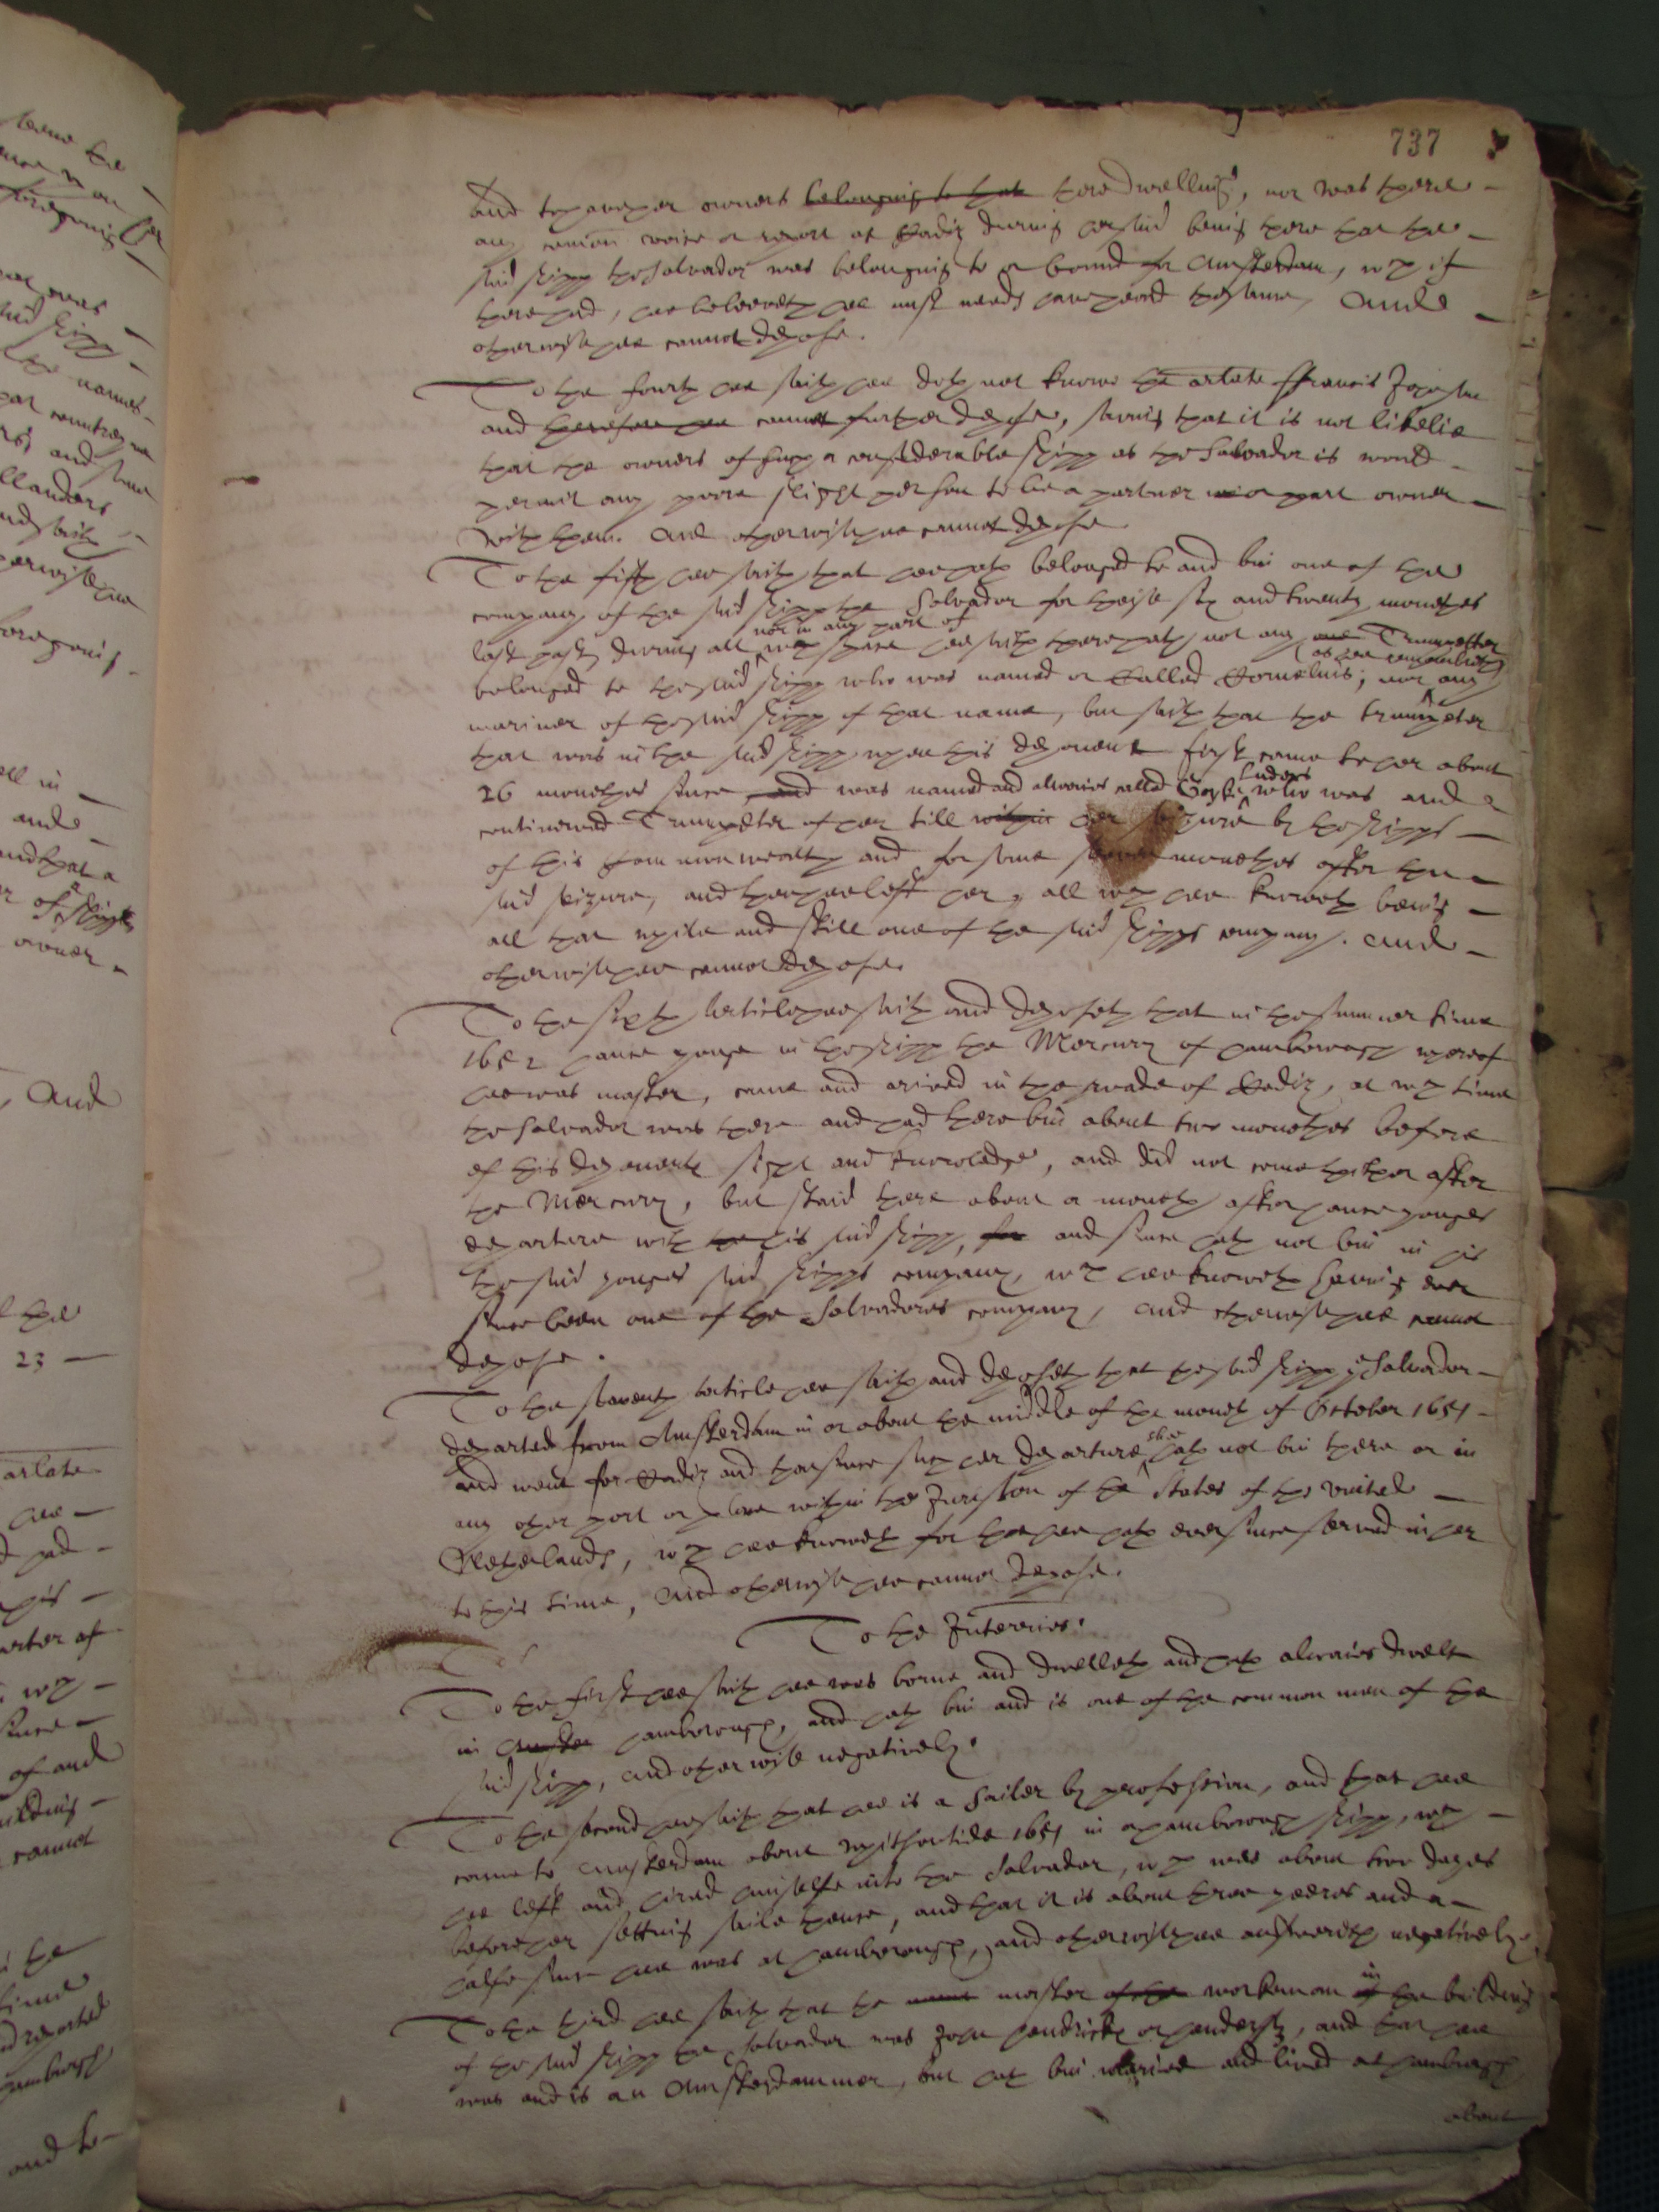 737
and to have her owners belonging to that there dwelling, nor was there
any comon voice or report at Cadiz during her said being there that the
said shipp the Salvador was belonging to or bound for Amsterdam, wch if
there had, hee beleeveth hee must needs have heard the same, And
otherwise hee cannot depose.
To the fourth hee saith hee doth not knowe the arlate ffrancis Johnson
and therefore hee cannot further depose, saving that it is not likelie
that the owners of such a considerable shipp as the Salvador is would
permit any poore slight person to be a partner or part owner
with them. And otherwise hee cannot depose
To the fifth hee saith that hee hath belonged to and bin one of the
company of the said shipp the Salvador for theise six and twenty moneths
last past, during all
nor in any part of
wch space hee saith there hath not any one Trumpetter
belonged to the said shipp who was named or called Cornelius,
(as hee remembreth)
nor any
mariner of the said shipp of that name, but saith that the trumpeter
that was in the said shipp when this deponent first came to her about
26 moneths since and was named and alwaies called
Luders
who was and
continewed Trumpeter of her till within her seizure by the shipps
of this Common wealth and for some moneths after the
said seizure, and then hee left her, all wch hee knoweth being
all that while and still one of the said shipps company. And
otherwise hee cannot depose.
To the sixth article hee saith and deposeth that in the summer time
1652 hance yonge in the shipp the Mercury of hamborough whereof
hee was master, came and arived in the roade of Cadiz, at wch time
the Salvador was there and had there bin about two moneths before
of this deponents sight and knowledge, and did not come thither after
the Mercury, but staid there about a moneth after hance yonges
departure with the his said shipp, for and since hath not bin in his
the said yonges said shipps company, wch hee knoweth having ever
since been one of the Salvadores company, and otherwise hee cannot
depose.
To the seaventh article hee saith and deposeth that the said shipp ye Salvador
departed from Amsterdam in or about the middle of the moneth of October 1651
and went for Cadiz and that since such her departure
shee
hath not bin there or in
any other port or place within the Jurisdcon of the States of the united
Netherlands, wch hee knoweth for that hee hath ever since served in her
to this time, And otherwise hee cannot depose.
To the Interries.
To the first hee saith hee was borne and dwelleth and hath alwaies dwelt
in Amster hamborough, and hath bin and is one of the common men of the
said shipp, and otherwise negatively.
To the second hee saith that hee is a Sailer by profession, and that hee
came to Amsterdam about whitsontide 1651 in a hamborough shipp, wch
hee left and hired himselfe into the Salvador, wch was about two dayes
before her setting saile thence, and that it is about three yeeres and a
halfe since hee was at hamborough, and otherwise hee answereth negatively.
To the third hee saith that the master of the workeman
in
of the building
of the said shipp the Salvador was John hendricks or hendersz, and that hee
was and is an Amsterdammer, but hath bin maried and lived at hamburgh
about